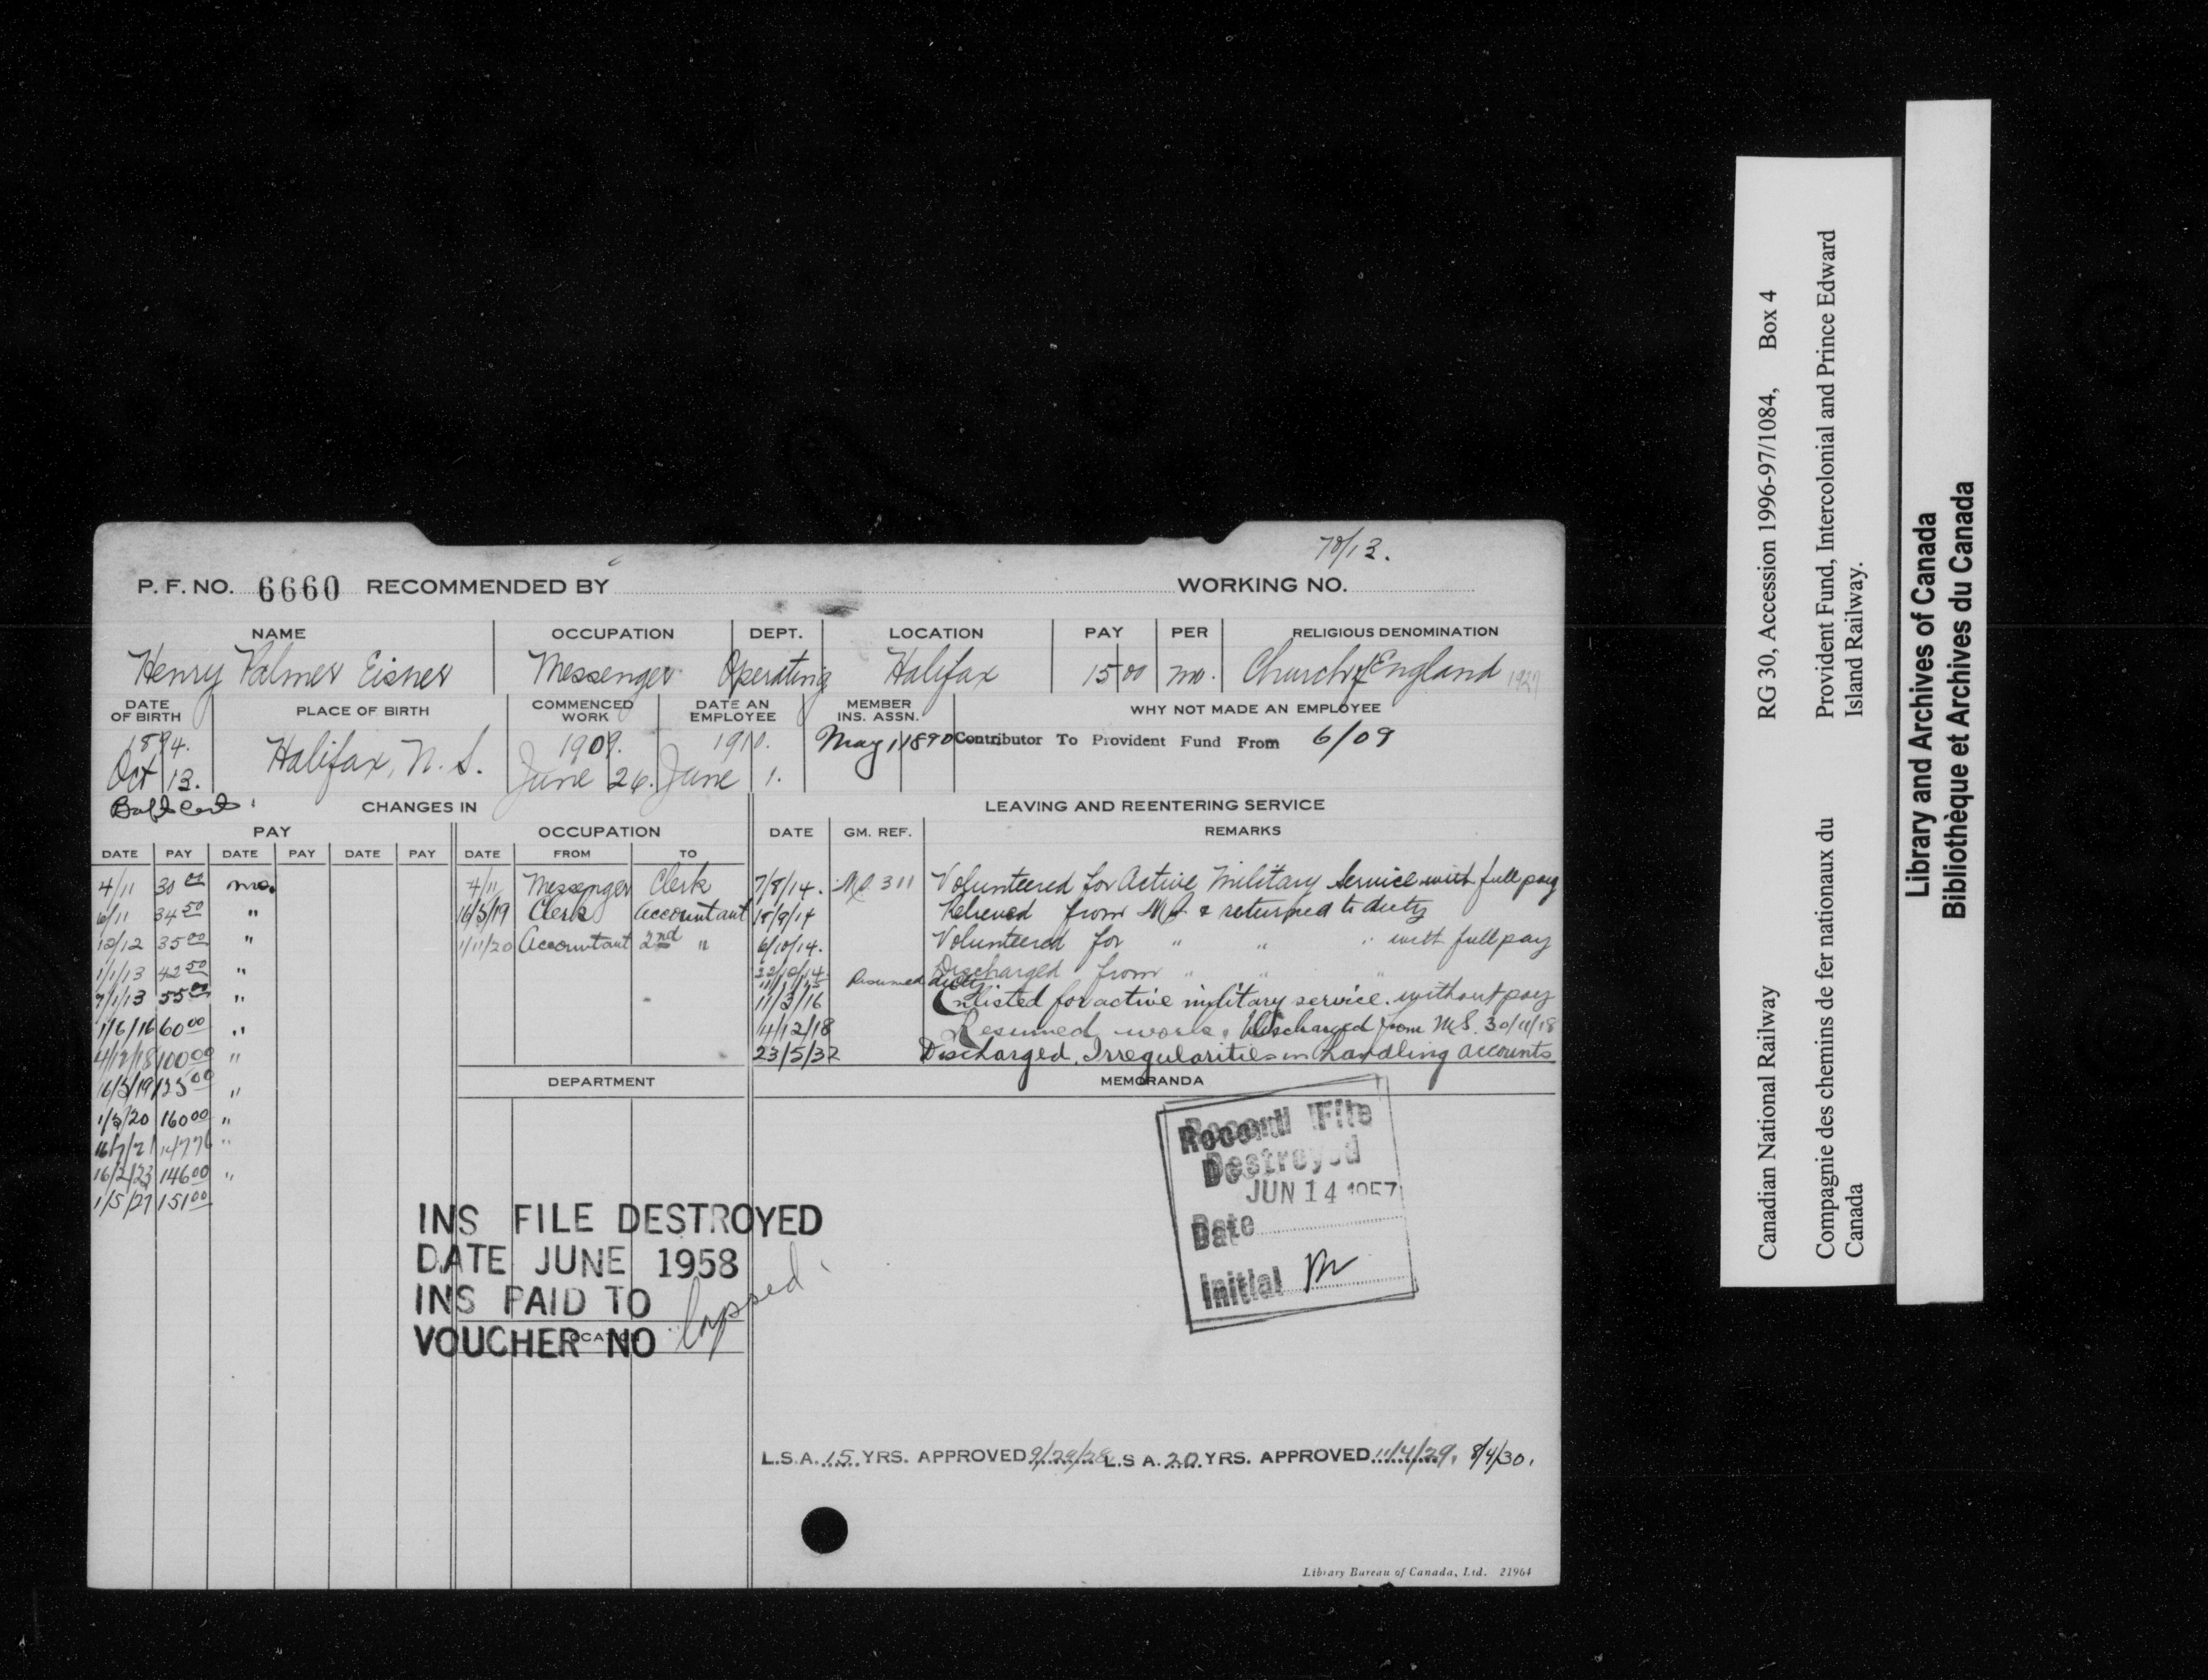 70/13.
P. F. NO. 6660 RECOMMENDED BY WORKING NO.
NAME OCCUPATION DEPT. LOCATION PAY PER RELIGIOUS DENOMINATION
Henry Palmer Eisner Messenger Operating Halifax 15 00 mo. Church of England 1927
DATE OF BIRTH PLACE OF BIRTH COMMENCED WORK DATE AN EMPLOYEE MEMBER INS. ASSN. WHY NOT MADE AN EMPLOYEE
1894. Oct 13. Halifax, N. S. 1909. June 26. 1910. June 1. May 1 1890 Contributor To Provident Fund From 6/09
CHANGES IN LEAVING AND REENTERING SERVICE
PAY OCCUPATION DATE GM. REF. REMARKS
DATE PAY DATE PAY DATE PAY DATE FROM TO
4/11 30 00 mo. 4/11 Messenger Clerk 7/8/14. 311 Volunteered for Active Military Service with full pay
6/11 34 50 " 16/5/19 Clerk Accountant 18/9/14 Relieved from M S & returned to duty
12/12 35 00 " 1/11/20 Accountant 2nd " 6/10/14. Volunteered for " " " with full pay
1/1/13 42 50 " Discharged from " " "
7/1/13 55 00 " Resumed duty
11/3/16 Enlisted for active military service. without pay
1/6/16 60 00 " 4/12/18 Resumed work. Discharged from M.S. 30/11/18
4/12/18 100 00 " 23/5/32 Discharged. Irregularities in handling accounts
16/5/19 125 00 " DEPARTMENT MEMORANDA
1/5/20 160 00 "
16/7/21 "
16/2/23 146 00 "
1/5/27 151 00
Record File
Destroyed
JUN 14 1957
Date
Initial M
INS FILE DESTROYED
DATE JUNE 1958
INS PAID TO
VOUCHER NO lapsed
LOCATION
L.S.A. 15 YRS. APPROVED 9/29/28 L.S A. 20 YRS. APPROVED 11/4/29. 8/4/30.
Library Bureau of Canada, Ltd. 21964
Canadian National Railway RG 30, Accession 1996-97/1084, Box 4
Compagnie des chemins de fer nationaux du Canada
Provident Fund, Intercolonial and Prince Edward Island Railway.
Library and Archives of Canada
Bibliothèque et Archives du Canada